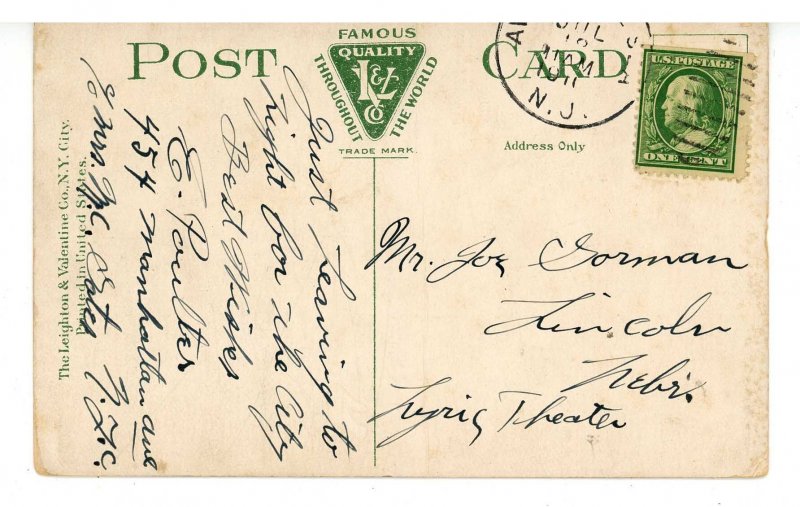 POST CARD
FAMOUS
QUALITY
THROUGHOUT
THE WORLD
L&V
CO
TRADE MARK.
JUL
11 AM
1911
N. J.
U.S. POSTAGE
ONE CENT
Address Only
The Leighton & Valentine Co., N.Y. City.
Printed in United States.
Just leaving to
night for the City
Best Wishes
E. Poulter
454 Manhattan ave
N.Y.C.
Mr. Joe Gorman
Lincoln
Nebr.
Lyric Theater